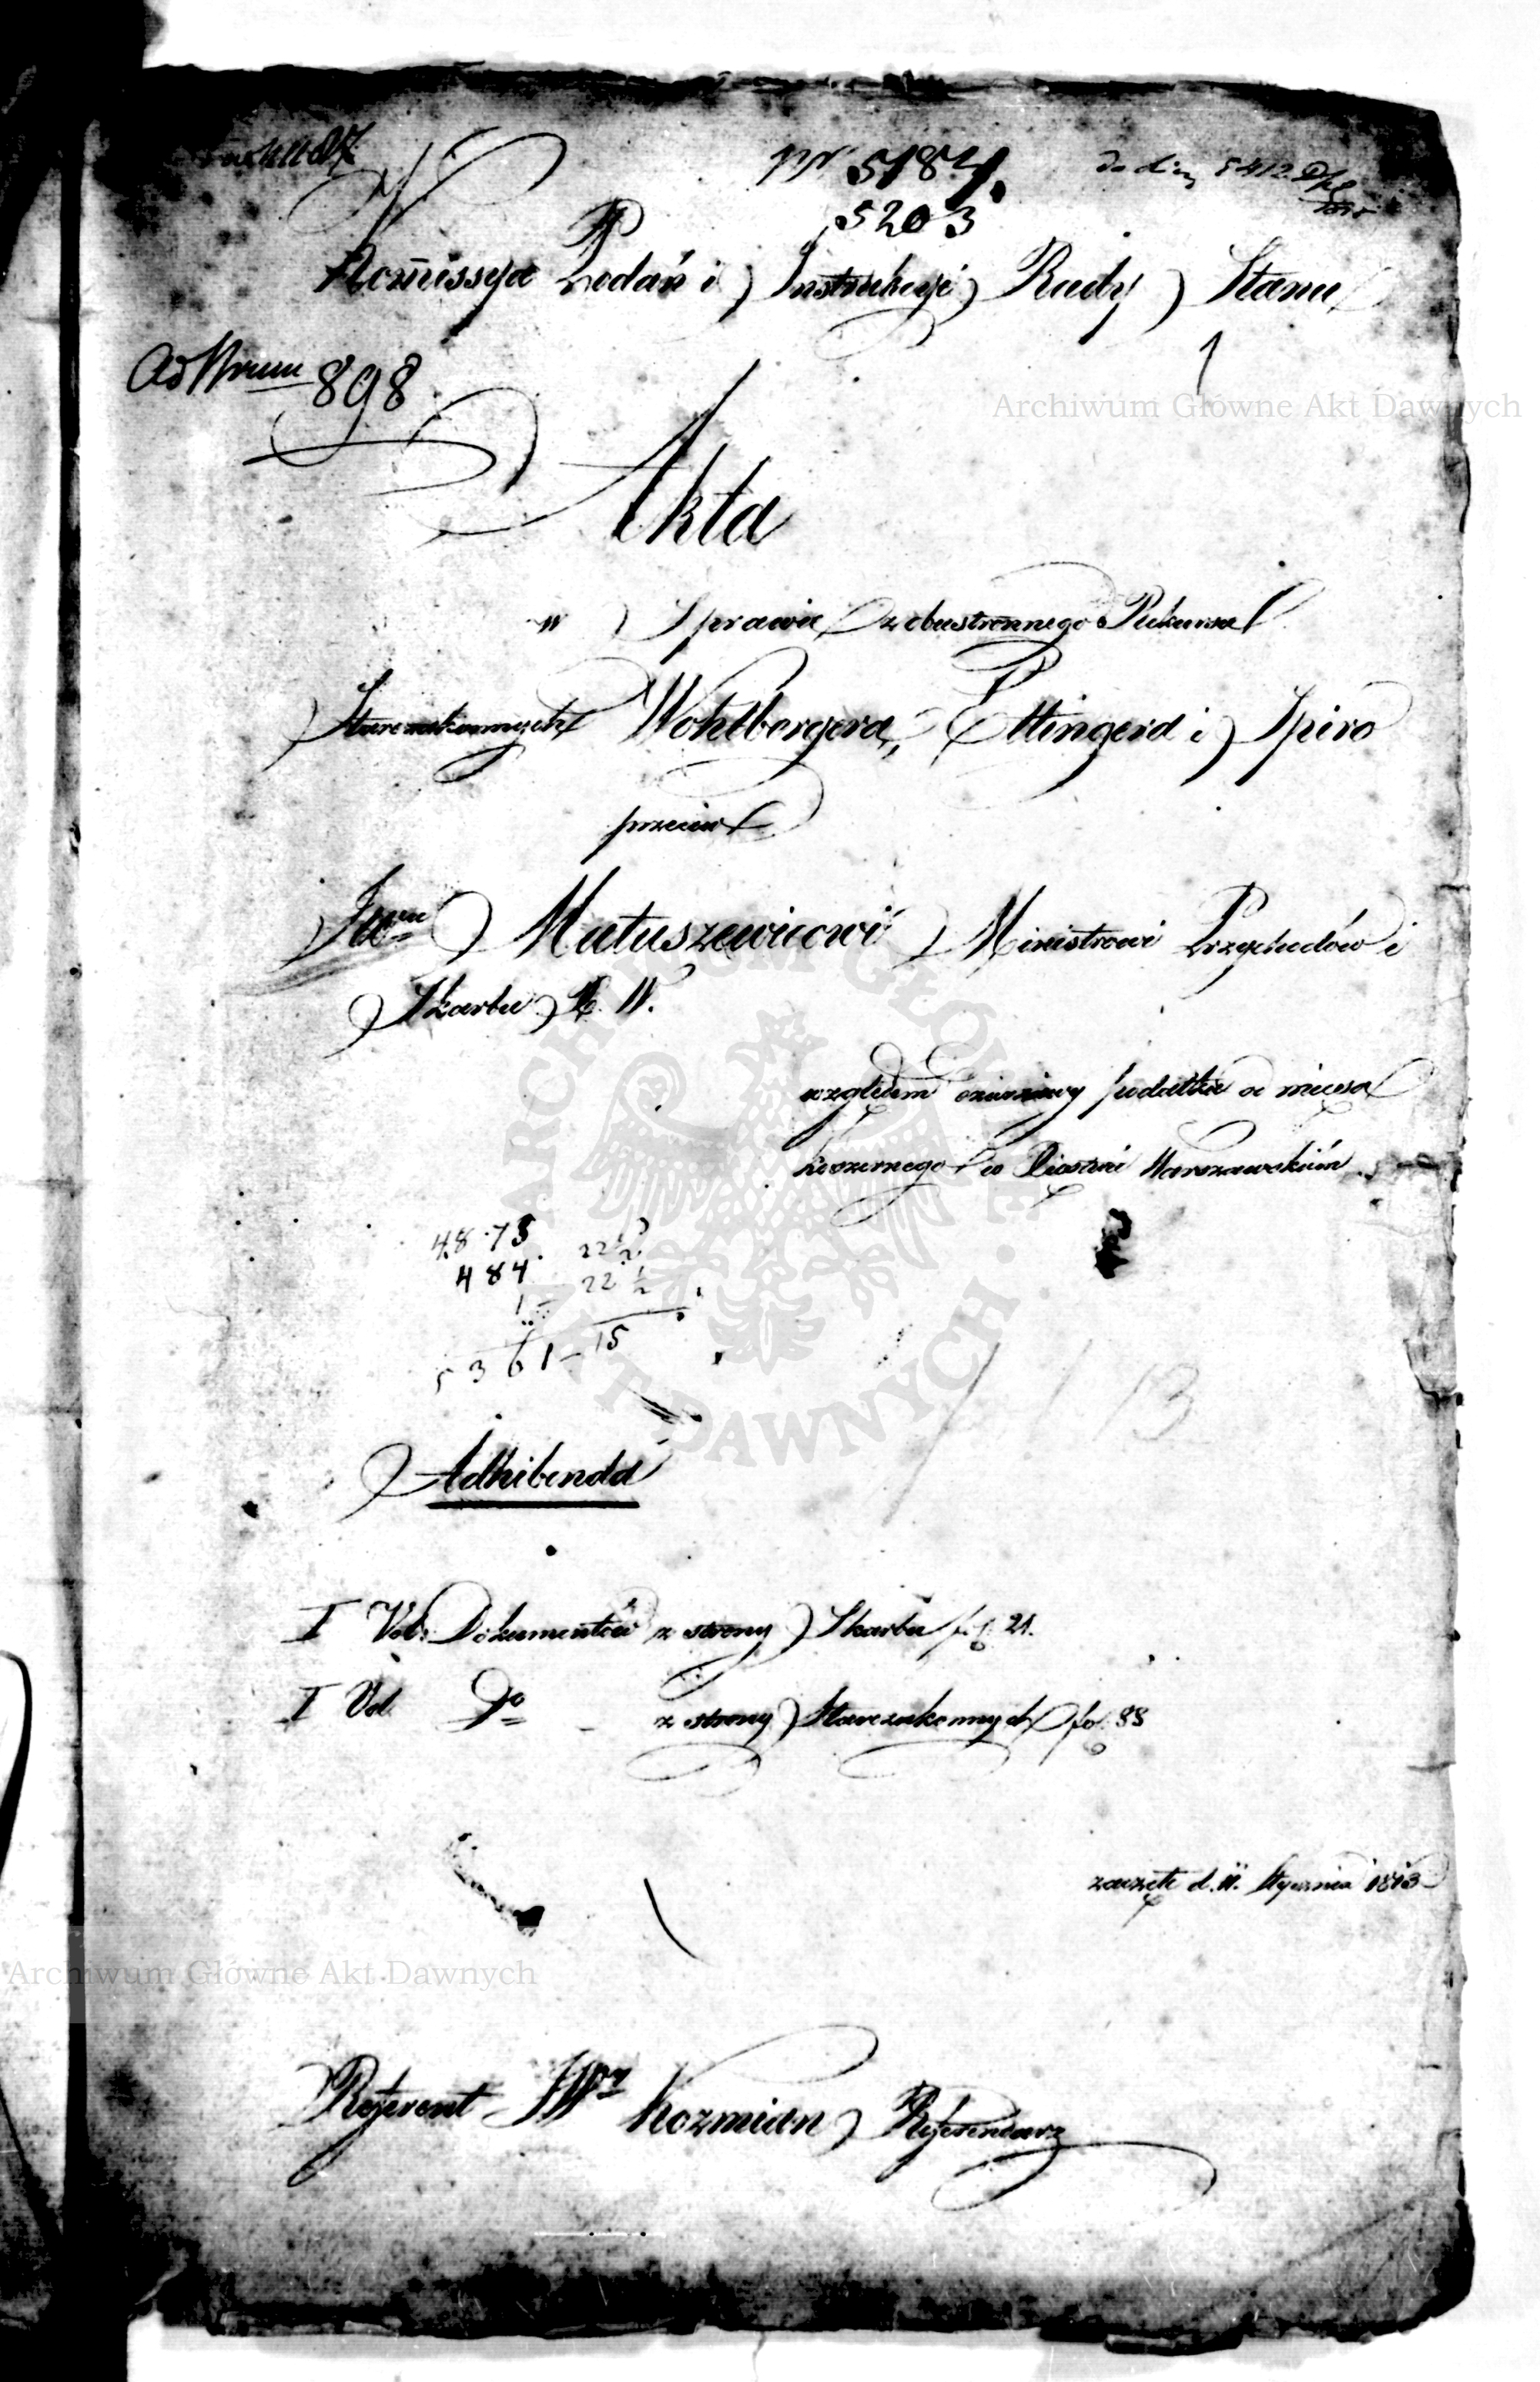 Nr 5184.
5203
Kom̄issya Podań i Instrukcyi Rady Stanu
1
Ad Nrum 898
Archiwum Główne Akt Dawnych
Akta
w Sprawie z obustronnego Rekursu
Starozakonnych Wohlbergera, Ettingera i Spiro
przeciw
JWmu Matuszewicowi Ministrowi Przychodów i
Skarbu X. W.
względem dzierżawy podatku od mięsa
koszernego w Mieście Warszawskim
48.73 22½
484 22½
1
5361–15
113
Adhibenda
I Vol: Dokumentów z strony Skarbu fol: 21.
I Vol. Do z strony Starozakonnych fol: 88
zaczęte d. 11. Stycznia 1813
Archiwum Główne Akt Dawnych
Referent JWny Kozmian Referendarz
ARCHIWUM GŁÓWNE AKT DAWNYCH